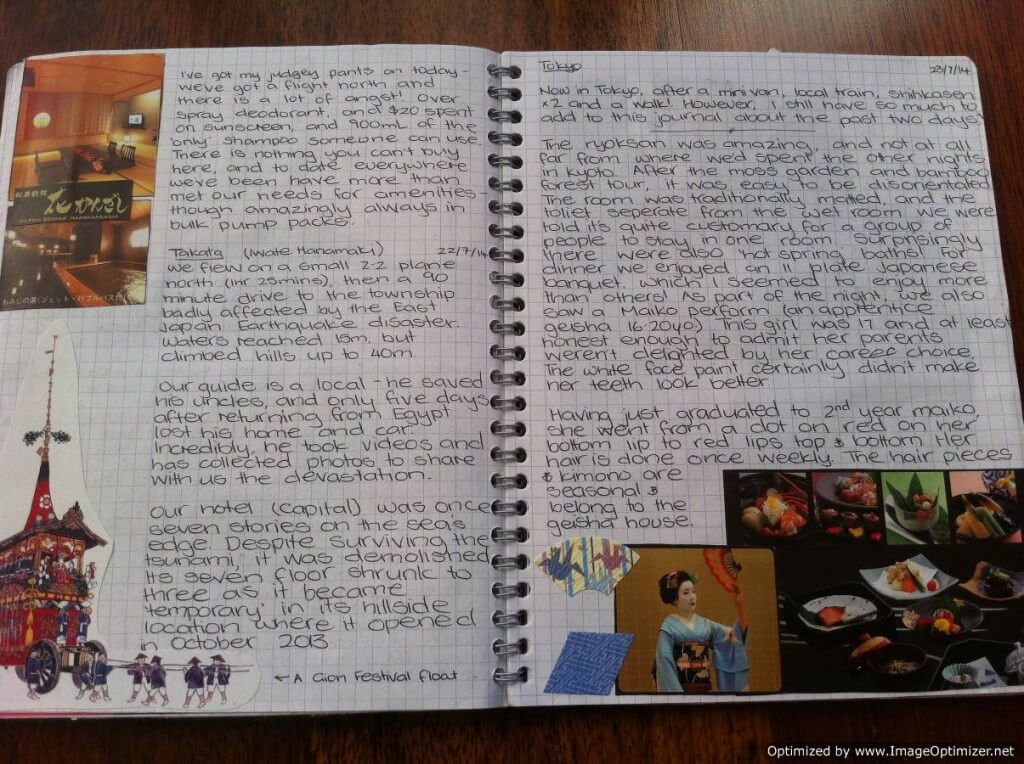 I've got my judgey pants on today -
we've got a flight north and
there is a lot of angst! Over
spray deodorant, and $20 spent
on sunscreen, and 900mL of the
'only' shampoo someone can use.
There is nothing you can't buy
here, and to date everywhere
we've been have more than
met our needs for amenities
though amazingly always in
bulk pump packs.
花かんざし
もみじの湯(ジェット・バブルバス付)
Takata (Iwate Hanamaki) 22/7/14
We flew on a small 2-2 plane
north (1hr 25mins), then a 90
minute drive to the township
badly affected by the East
Japan Earthquake disaster.
Waters reached 15m, but
climbed hills up to 40m.
Our guide is a local - he saved
his uncles, and only five days
after returning from Egypt
lost his home and car.
Incredibly, he took videos and
has collected photos to share
with us the devastation.
Our hotel (capital) was once
seven stories on the sea's
edge. Despite surviving the
tsunami, it was demolished
Its seven floor shrunk to
three as it became
'temporary' in its hillside
location where it opened
in October 2013
← A Gion Festival Float
Tokyo 23/7/14
Now in Tokyo, after a minivan, local train, shinkasen
x2 and a walk! However, I still have so much to
add to this journal about the past two days!
The ryoksan was amazing, and not at all
far from where we'd spent the other nights
in Kyoto. After the moss garden and bamboo
forest tour, it was easy to be disorientated.
The room was traditionally matted, and the
toliet seperate from the wet room we were
told it's quite customary for a group of
people to stay in one room. Surprisingly
there were also 'hot spring' baths! For
dinner we enjoyed an 11 plate Japanese
banquet, which I seemed to enjoy more
than others! As part of the night, we also
saw a Maiko perform (an apprentice
geisha 16-20yo). This girl was 17 and at least
honest enough to admit her parents
weren't delighted by her career choice.
The white face paint certainly didn't make
her teeth look better
Having just graduated to 2nd year maiko,
she went from a dot on red on her
bottom lip to red lips top & bottom. Her
hair is done once weekly. The hair pieces
& kimono are
seasonal &
belong to the
geisha house.
Optimized by www.ImageOptimizer.net